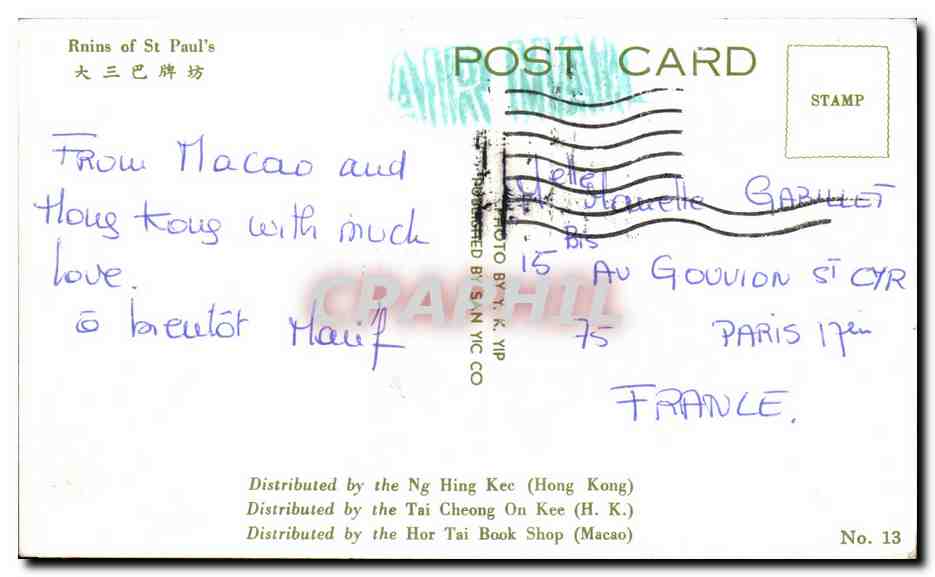 Rnins of St Paul's
大三巴牌坊
AIR MAIL
POST CARD
STAMP
From Macao and
Hong Kong with much
love.
à bientôt
Melle GABILLET
15 Bis AV GOUVION ST CYR
75 PARIS 17em
FRANCE.
PHOTO BY Y. K. YIP
PUBLISHED BY SAN YIC CO
CPAPHIL
Distributed by the Ng Hing Kee (Hong Kong)
Distributed by the Tai Cheong On Kee (H. K.)
Distributed by the Hor Tai Book Shop (Macao)
No. 13